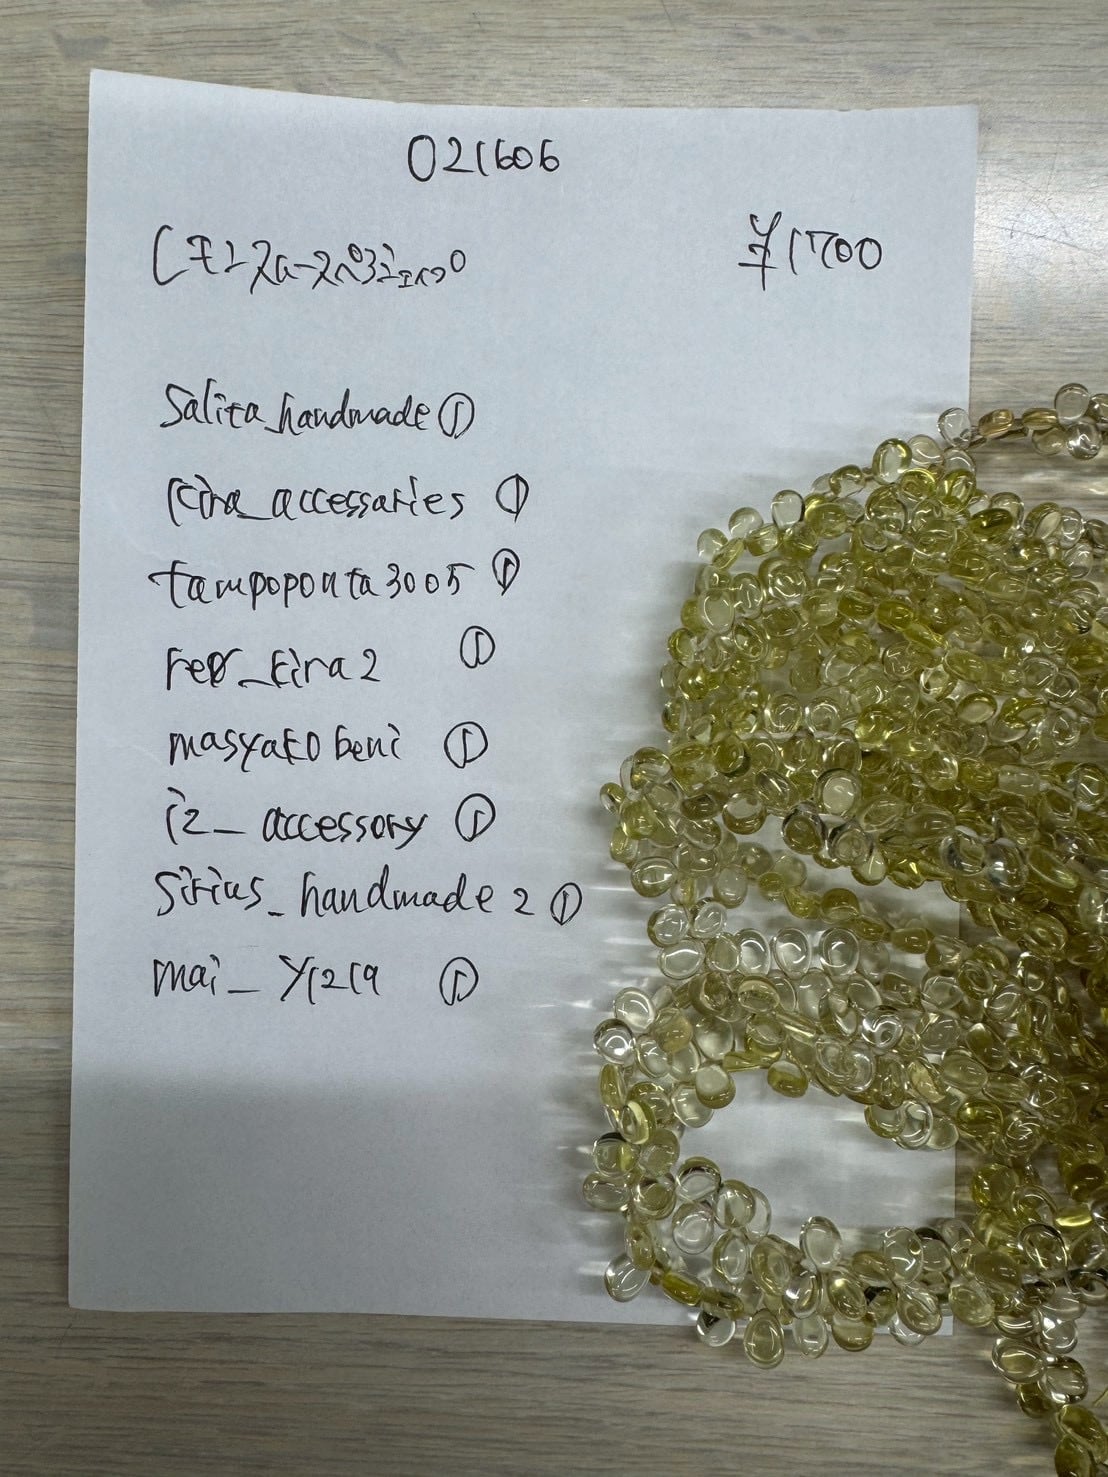 021606
¥1700
salita_handmade ①
kira_accessaries ①
tampoponta3005 ①
①
masyakobeni ①
iz_accessory ①
sirius_handmade2 ①
mai_y1219 ①